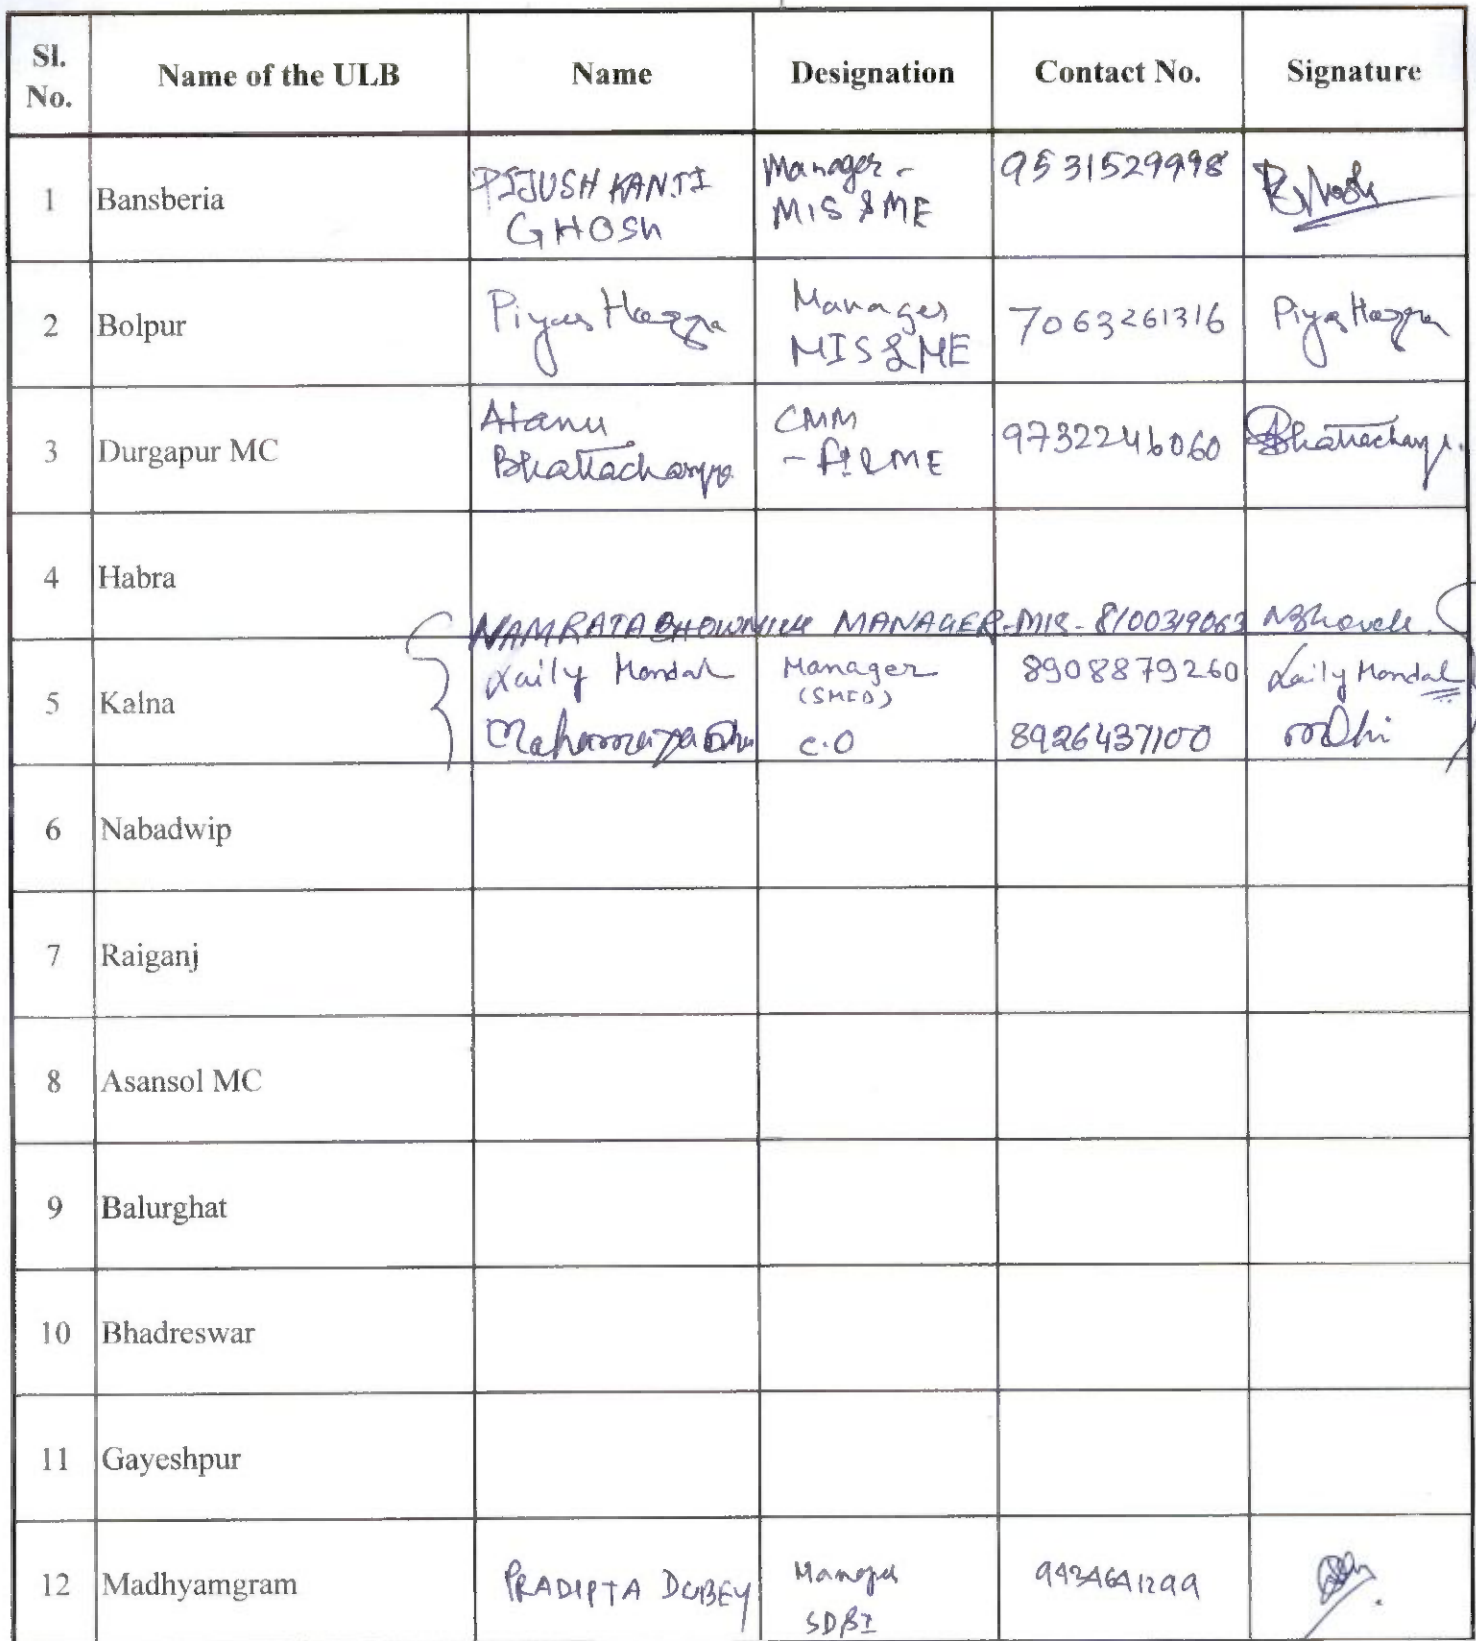 Sl. No. Name of the ULB Name Designation Contact No. Signature
1 Bansberia PIJUSH KANTI GHOSH Manager - MIS & ME 9531529998
2 Bolpur Piyas Hazra Manager MIS & ME 7063261316 Piyas Hazra
3 Durgapur MC Atanu Bhattacharyya CMM 9732246060 Bhattacharyya.
4 Habra
NAMRATA BHOWMICK MANAGER-MIS- 8100319063
5 Kalna Laily Mondal Manager (SMID) 8908879260 Laily Mondal
Mahamaya C.O 8926437100
6 Nabadwip
7 Raiganj
8 Asansol MC
9 Balurghat
10 Bhadreswar
11 Gayeshpur
12 Madhyamgram PRADIPTA DUBEY Manager 9434641299